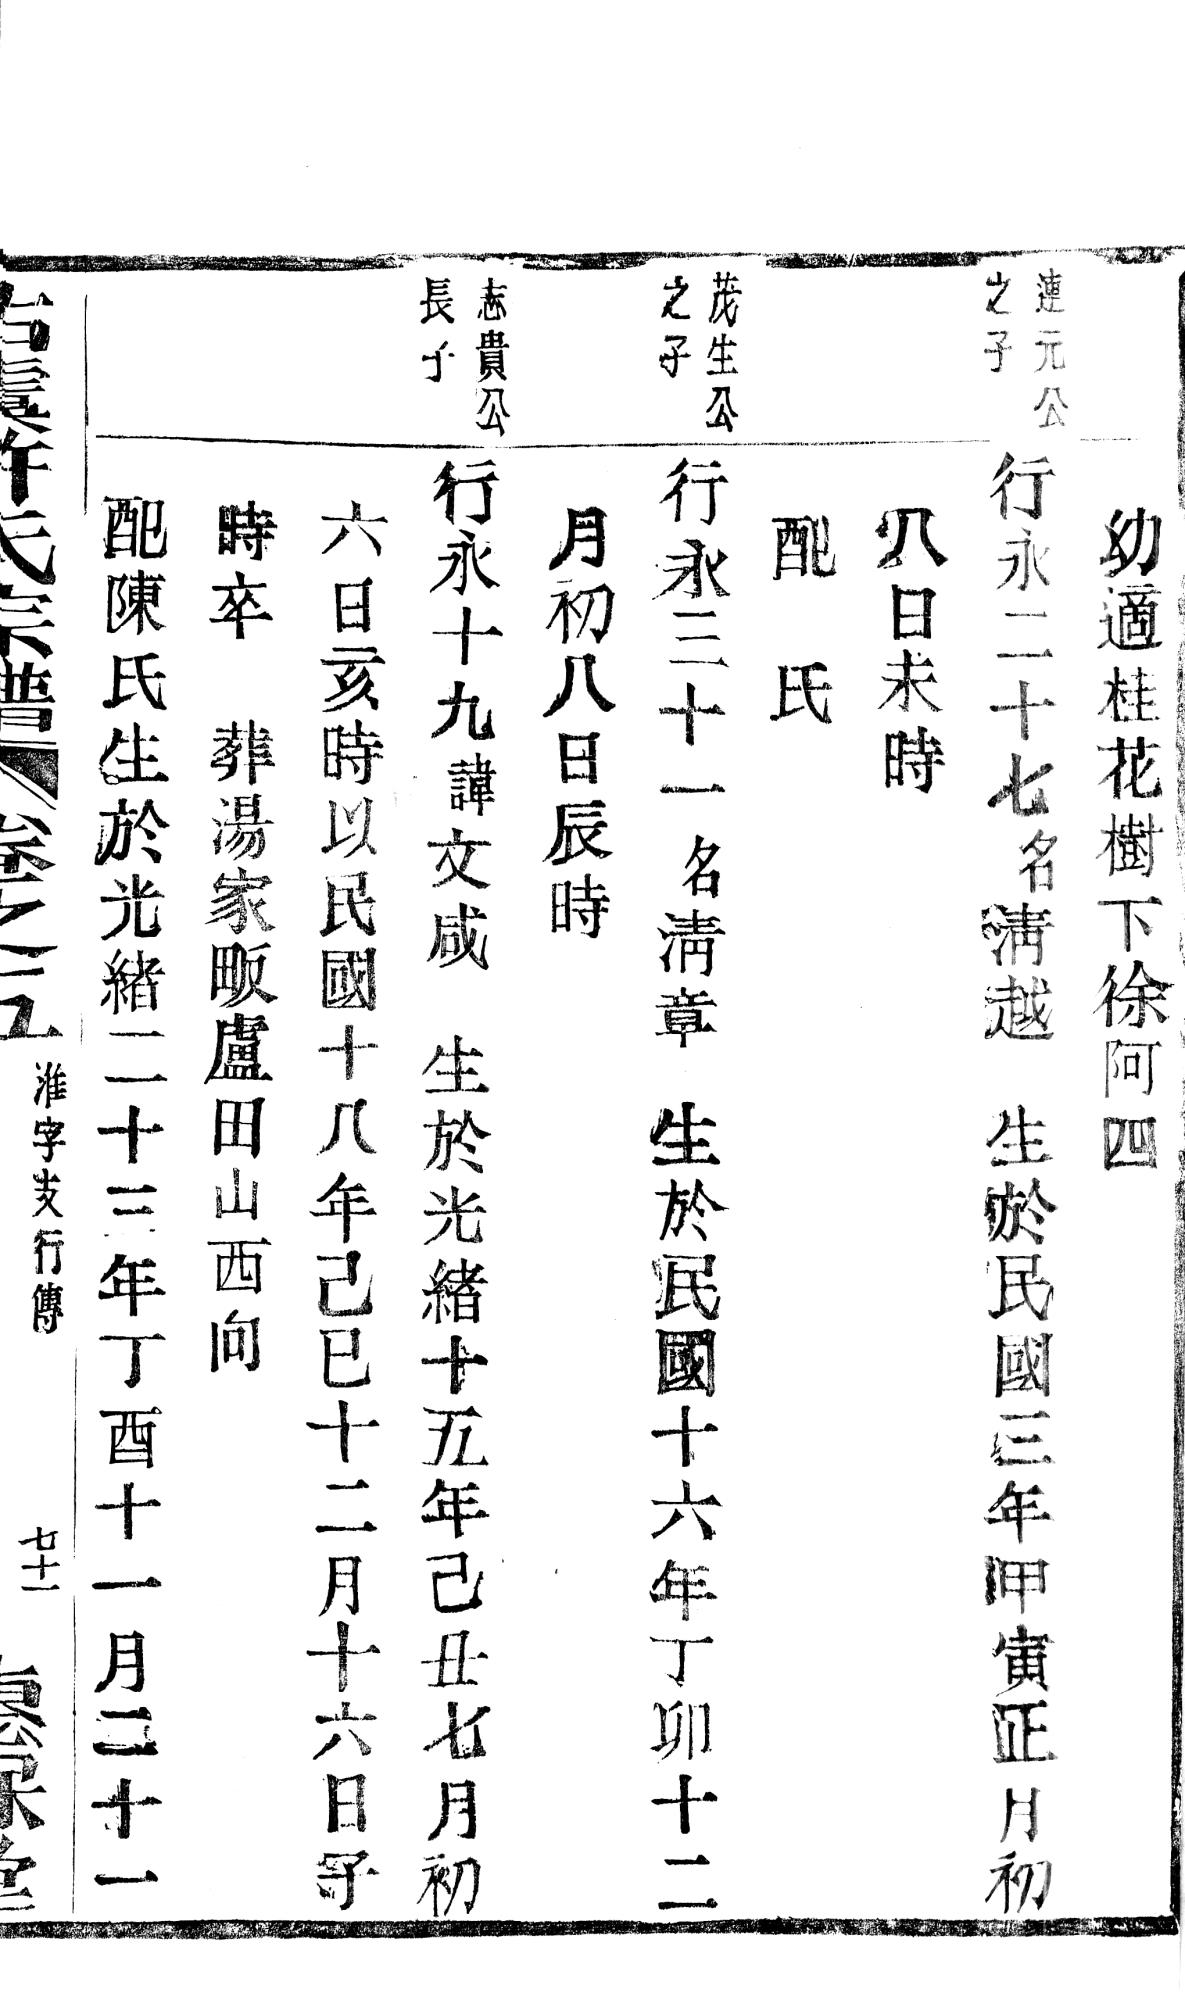 幼適桂花樹下徐阿四
連元公
之子
行永二十七名淸越　生於民國三年甲寅正月初
八日未時
配　氏
茂生公
之子
行永三十一名淸章　生於民國十六年丁卯十二
月初八日辰時
志貴公
長子
行永十九諱文咸　生於光緒十五年己丑七月初
六日亥時以民國十八年己巳十二月十六日子
時卒　葬湯家畈盧田山西向
配陳氏生於光緒二十三年丁酉十一月二十一
古虞許氏宗譜　卷之五　淮字支行傳　七十一